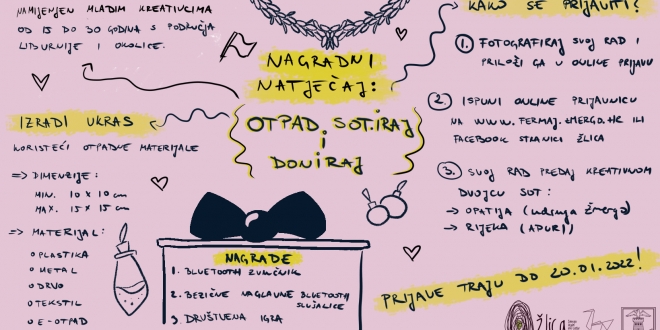 NAMIJENJEN MLADIM KREATIVCIMA
OD 15 DO 30 GODINA S PODRUČJA
LIBURNIJE I OKOLICE.
IZRADI UKRAS
KORISTEĆI OTPADNE MATERIJALE
=> DIMENZIJE:
MIN. 10 X 10 cm
MAX. 15 X 15 cm
=> MATERIJAL:
o PLASTIKA
o METAL
o DRVO
o TEKSTIL
o E-OTPAD
NAGRADNI
NATJEČAJ:
OTPAD SOT.IRAJ
i
DONIRAJ
NAGRADE
1. BLUETOOTH ZVUČNIK
2. BEŽIČNE NAGLAVNE BLUETOOTH
SLUŠALICE
3. DRUŠTVENA IGRA
KAKO SE PRIJAVITI?
1. FOTOGRAFIRAJ SVOJ RAD I
PRILOŽI GA U ONLINE PRIJAVU
2. ISPUNI ONLINE PRIJAVNICU
NA WWW.FERMAJ.ZMERGO.HR ILI
FACEBOOK STRANICI ŽLICA
3. SVOJ RAD PREDAJ KREATIVNOM
DVOJCU SOT:
-> OPATIJA (udruga Žmergo)
-> RIJEKA (APURI)
PRIJAVE TRAJU DO 20.01.2022!
žlica